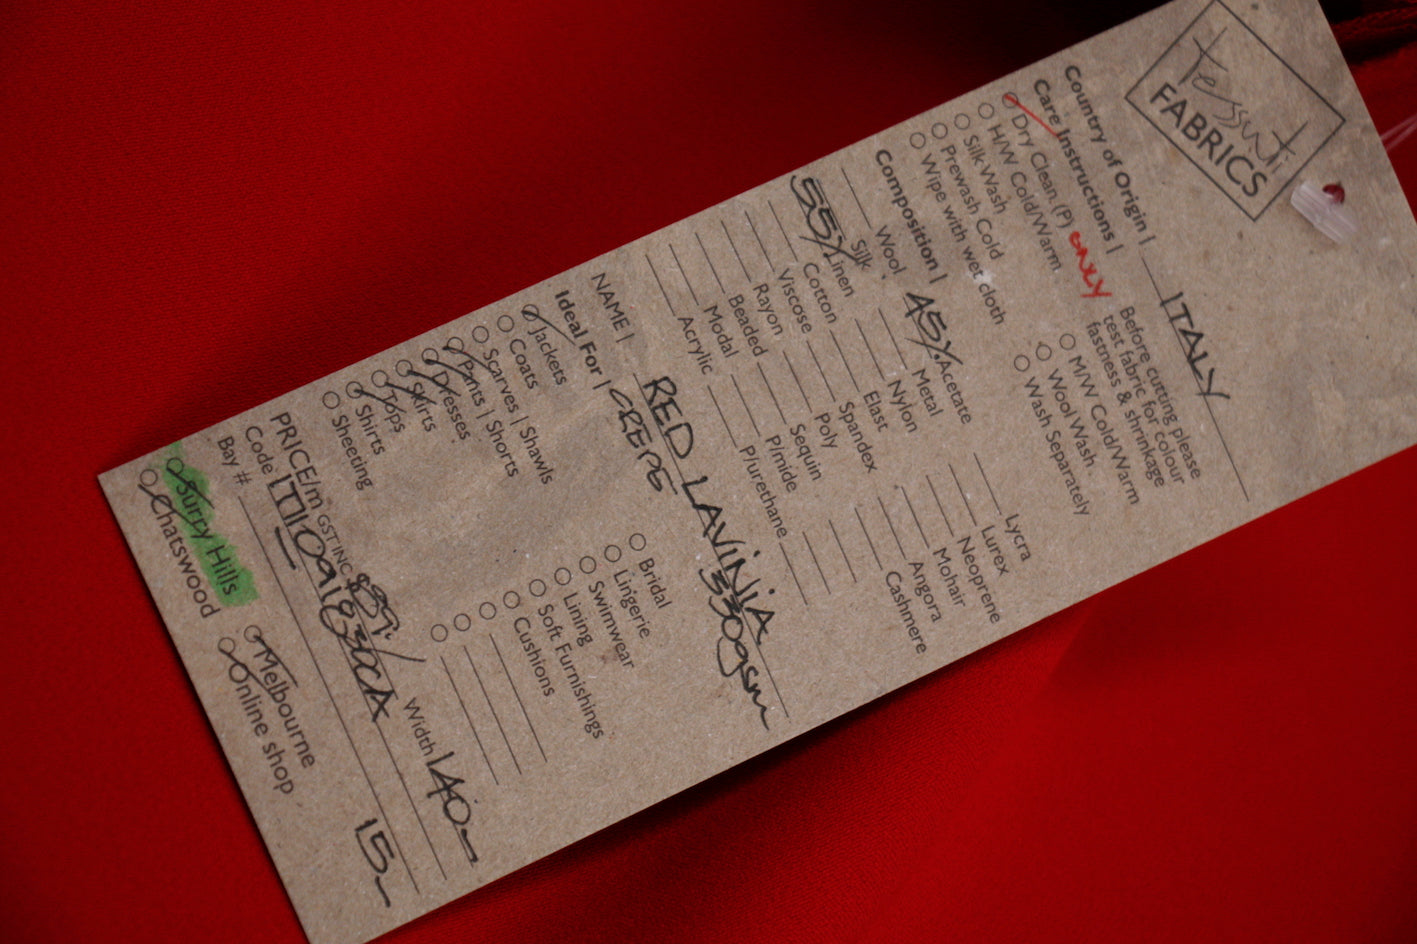 tessuti
FABRICS
Country of Origin | ITALY
Care Instructions |
Dry Clean (P) ONLY
H/W Cold/Warm
Silk Wash
Prewash Cold
Wipe with wet cloth
Before cutting please
test fabric for colour
fastness & shrinkage
M/W Cold/Warm
Wool Wash
Wash Separately
Composition |
Wool
Silk
55% Linen
Cotton
Viscose
Rayon
Beaded
Modal
Acrylic
45% Acetate
Metal
Nylon
Elast
Spandex
Poly
Sequin
P/mide
P/urethane
Lycra
Lurex
Neoprene
Mohair
Angora
Cashmere
NAME | RED LAVINIA
CREPE 330gsm
Ideal For |
Jackets
Coats
Scarves | Shawls
Pants | Shorts
Dresses
Skirts
Tops
Shirts
Sheeting
Bridal
Lingerie
Swimwear
Lining
Soft Furnishings
Cushions
PRICE/m GST INC Width 140-
Code
Bay # 15-
Surry Hills
Chatswood
Melbourne
Online shop